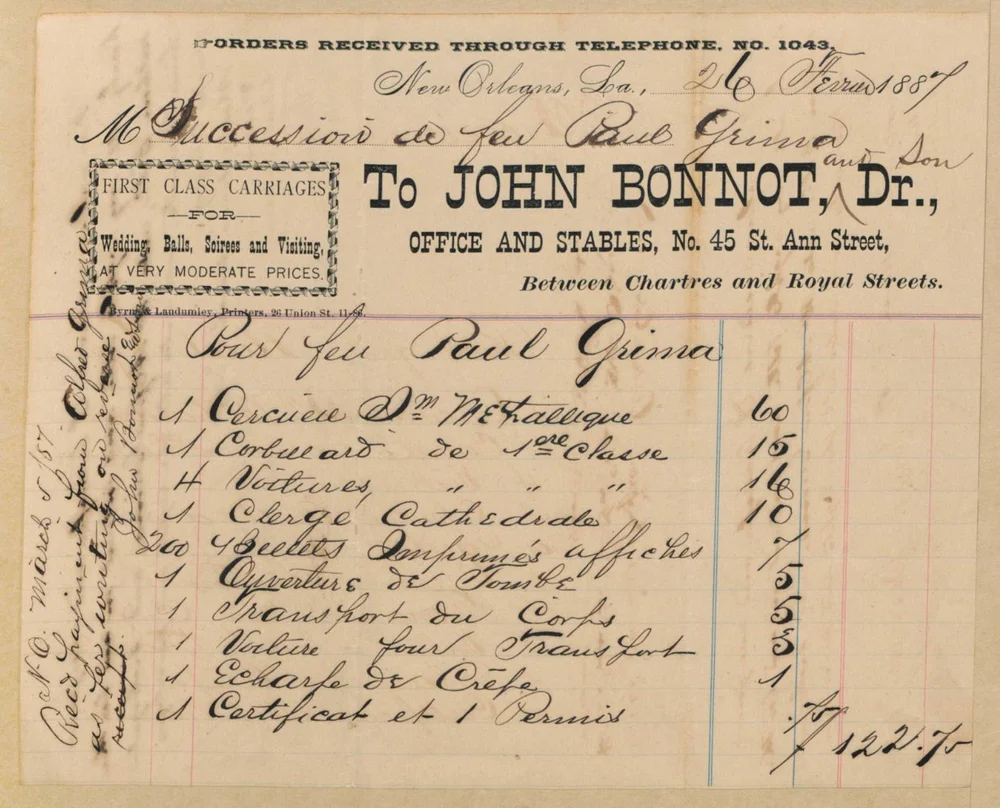 ORDERS RECEIVED THROUGH TELEPHONE, NO. 1043.
New Orleans, La., 26 Fevrier 1887
M Succession de feu Paul Grima
and Son
To JOHN BONNOT, Dr.,
OFFICE AND STABLES, No. 45 St. Ann Street,
Between Chartres and Royal Streets.
FIRST CLASS CARRIAGES
—FOR—
Wedding, Balls, Soirees and Visiting,
AT VERY MODERATE PRICES.
Byrne & Landumiey, Printers, 26 Union St. 11-86.
Pour feu Paul Grima
1 Cercueil Dm Metallique 60
1 Corbillard de 1ere Classe 15
4 Voitures, " " " 16
1 Clergé Cathedrale 10
200 Billets Imprimés affiches 7
1 Ouverture de Tombe 5
1 Transport du Corps 5
1 Voiture pour Transport 3
1 Echarpe de Crêpe 1
1 Certificat et 1 Permis .75
$122.75
N.O. March 5/87.
Recd payment from Alfred Grima
as per writing on reverse
receipt.
John Bonnot